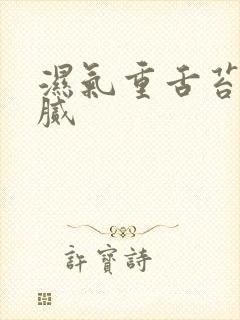 濕氣重舌苔
膩
許寶詩